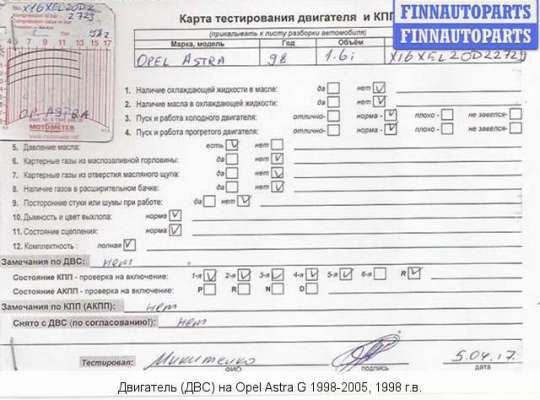 X16XEL20D2
2729
4 5 7 9 11 13 15 17
OPEL ASTRA
MOTOMETER
FINNAUTOPARTS
FINNAUTOPARTS
FINNAUTOPARTS
Карта тестирования двигателя и КПП
(прикалывать к листу разборки автомобиля)
Марка, модель Год Объём
OPEL ASTRA 98 1.6i X16XEL20D22729
1. Наличие охлаждающей жидкости в масле: да нет V
2. Наличие масла в охлаждающей жидкости: да нет V
3. Пуск и работа холодного двигателя: отлично- норма - V плохо - не завелся-
4. Пуск и работа прогретого двигателя: отлично- норма - V плохо - не завелся-
5. Давление масла: есть V нет
6. Картерные газы из маслозаливной горловины: да нет V
7. Картерные газы из отверстия масляного щупа: да нет V
8. Наличие газов в расширительном бачке: да нет V
9. Посторонние стуки или шумы при работе: да нет V
10. Дымность и цвет выхлопа: норма V
11. Состояние сцепления: норма V
12. Комплектность : полная V
Замечания по ДВС: нет
Состояние КПП - проверка на включение: 1-я V 2-я V 3-я V 4-я V 5-я V 6-я R V
Состояние АКПП - проверка на включение: P R N D
Замечания по КПП (АКПП): нет
Снято с ДВС (по согласованию!): нет
Тестировал: Микитенко 5.04.17
ФИО подпись дата
Двигатель (ДВС) на Opel Astra G 1998-2005, 1998 г.в.